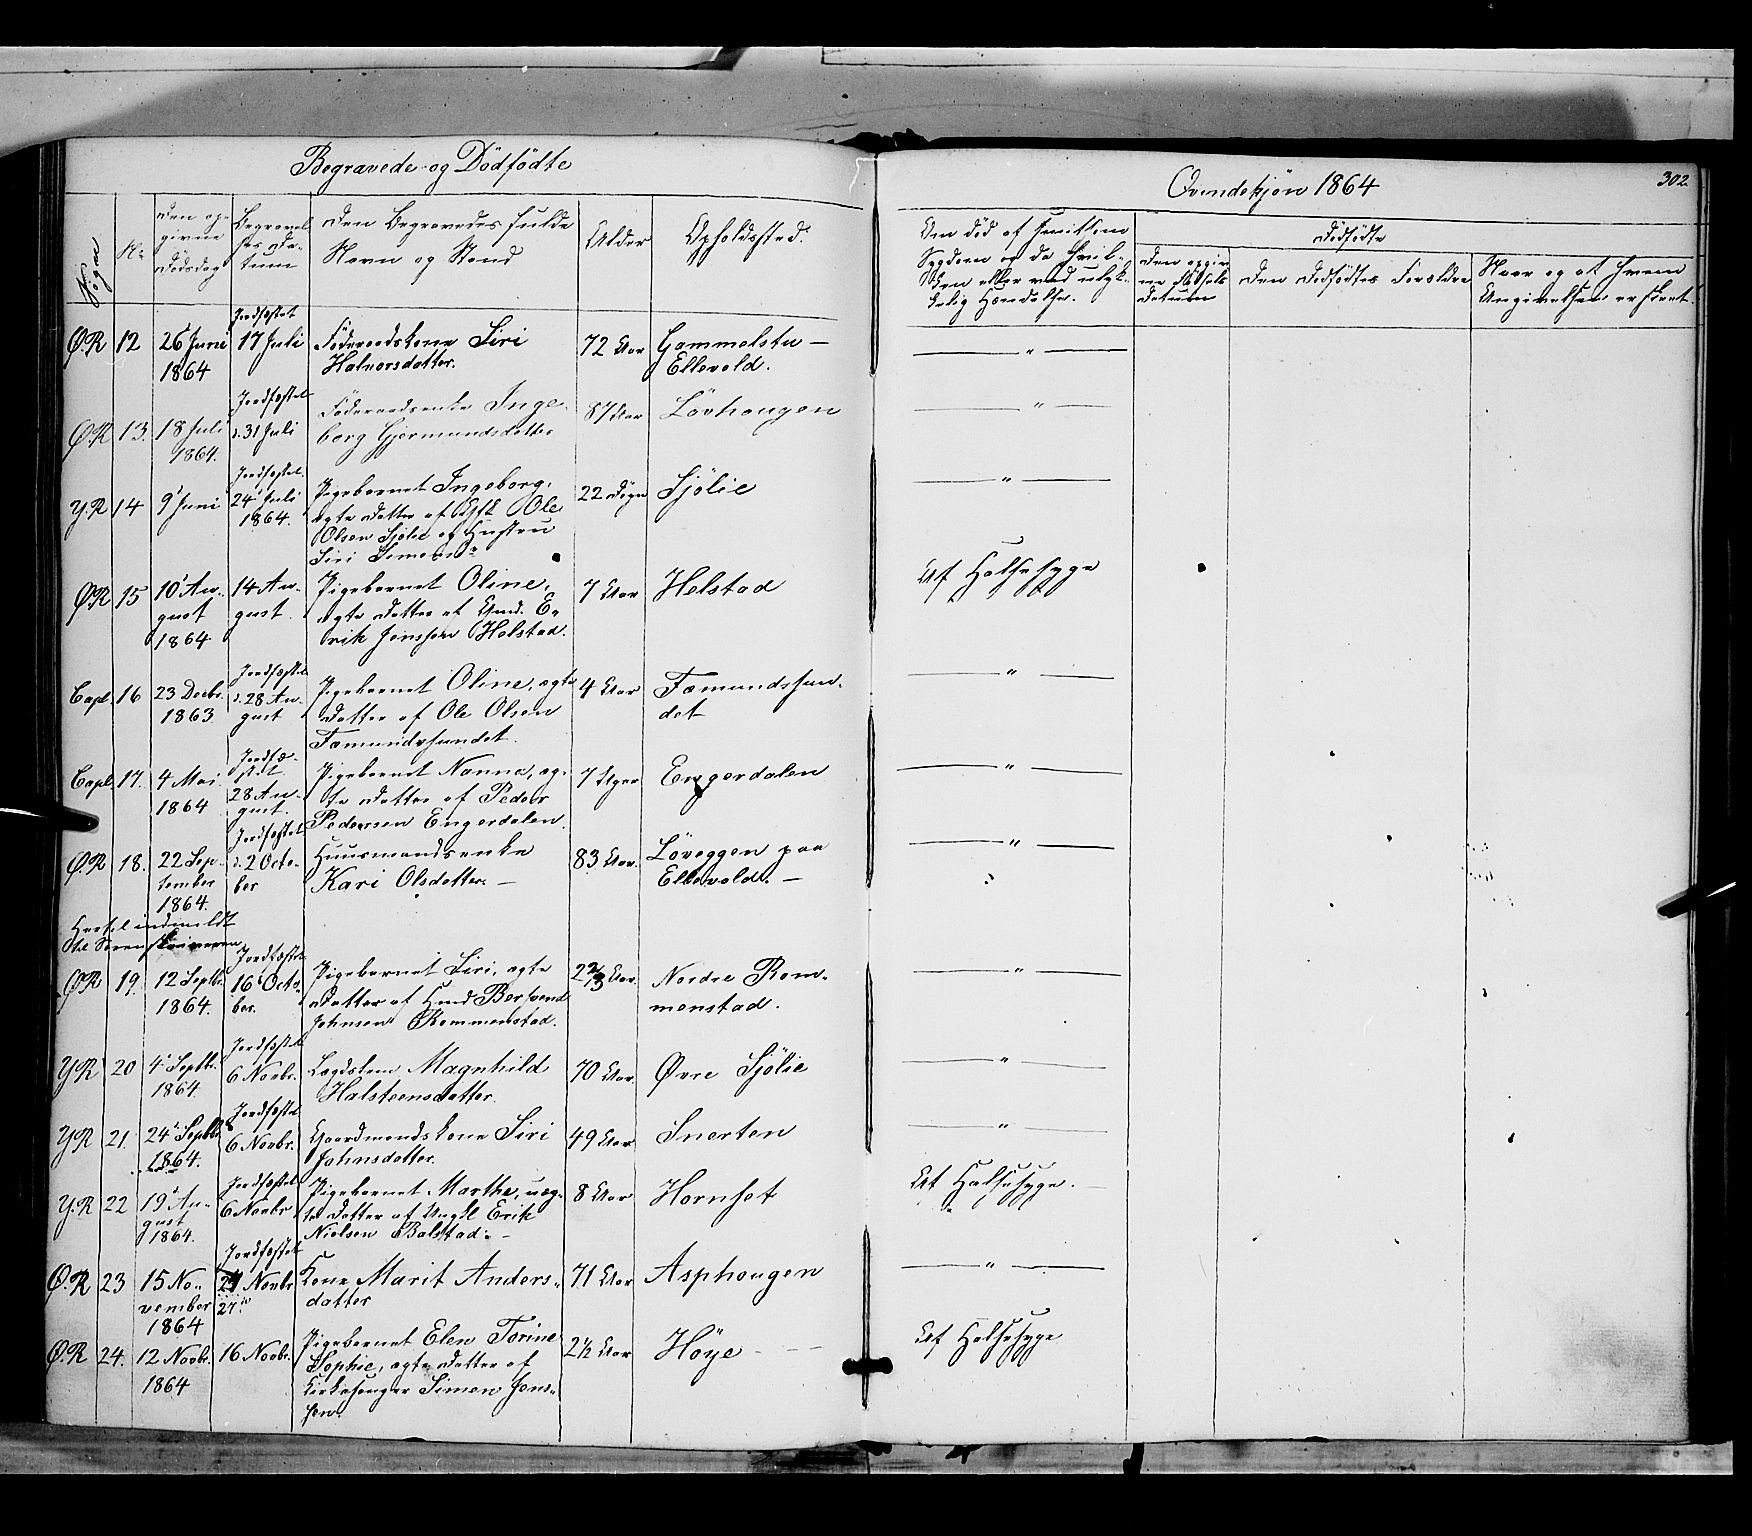 Begravede og Dödfödte
Qvindekjön 1864
302.
Sogn
Nr
Den op-
givne
Dödsdag
Begravel-
ses Da-
tum
Den Begravedes fulde
Navn og Stand
Alder
Opholdsted.
Om död af smitsom
Sygdom og da hvil-
ken eller ved ulyk-
kelig Hændelse.
Dödfödte
Den opgiv-
ne Födsels
datum
Den Dödfödtes Forældre
Naar og at hvem
Angivelsen er skeet.
Ø.R 12 26 Juni 1864
Jordfæstet 17 Juli
Föderaadskone Siri
Halvorsdatter.
72 Aar
Gammelstu-
Ellevold.
Ø.R 13. 18 Juli 1864.
Jordfæstet d. 31 Juli
Föderaadsenke Inge-
borg Gjermundsdatter
87 Aar
Lövhougen
Y.R 14 9 Juni
Jordfæstet 24 Juli 1864.
Pigebarnet Ingeborg,
ægte Datter af Ole
Olsen Sjölie og Hustru
Siri Simens
22 Dögn
Sjölie
Ø.R 15 10 August 1864
14 August.
Pigebarnet Oline,
ægte Datter af Gmd. E-
rik Jonssen Holstad.
7 Aar
Helstad
Af Halsesyge
Capl. 16 23 Decbr. 1863
Jordfæstet d. 28 August
Pigebarnet Oline, ægte
Datter af Ole Olsen
Fæmundssundet.
4 Aar
Fæmundssun-
det
Capl 17. 4 Mai 1864
Jordfæ-
stet 28 August.
Pigebarnet Nanna, æg-
te Datter af Peder
Pedersen Engerdalen.
7 Uger
Engerdalen
Ø.R 18. 22 September 1864.
Jordfæstet d. 2 October
Huusmandsenke
Kari Olsdatter. -
83 Aar.
Löveggen paa
Ellevold. -
Hertil indmeldt
til Sorenskriveren
Ø.R 19. 12 Septbr. 1864.
Jordfæstet 16 October.
Pigebarnet Siri, ægte
Datter af Gmd Bersvend
Johnsen Rommenstad.
2 2/3 Aar
Nordre Rom-
menstad.
Y.R 20 4 Septbr. 1864.
Jordfæstet 6 Novbr.
Lægdslem Magnhild
Halsteensdatter.
70 Aar.
Øvre Sjölie
Y.R 21. 24 Septbr 1864.
Jordfæstet 6 Novbr.
Gaardmandskone Siri
Johnsdatter.
49 Aar
Snerten
Y.R 22 19 August 1864.
Jordfæstet 6 Novbr
Pigebarnet Marthe, uæg-
te Datter af Ungkl Erik
Nielsen Balstad. -
8 Aar
Hornset
Af Halsesyge.
Ø.R 23 15 November 1864
Jordfæstet Novbr 27
Kone Marit Anders-
datter
71 Aar
Asphougen
Ø.R 24. 12 Novbr. 1864
16 Novbr.
Pigebarnet Elen Torine
Sophie, ægte Datter af
Kirkesanger Simen Jens-
sen.
2 1/2 Aar
Höye
Af Halsesyge